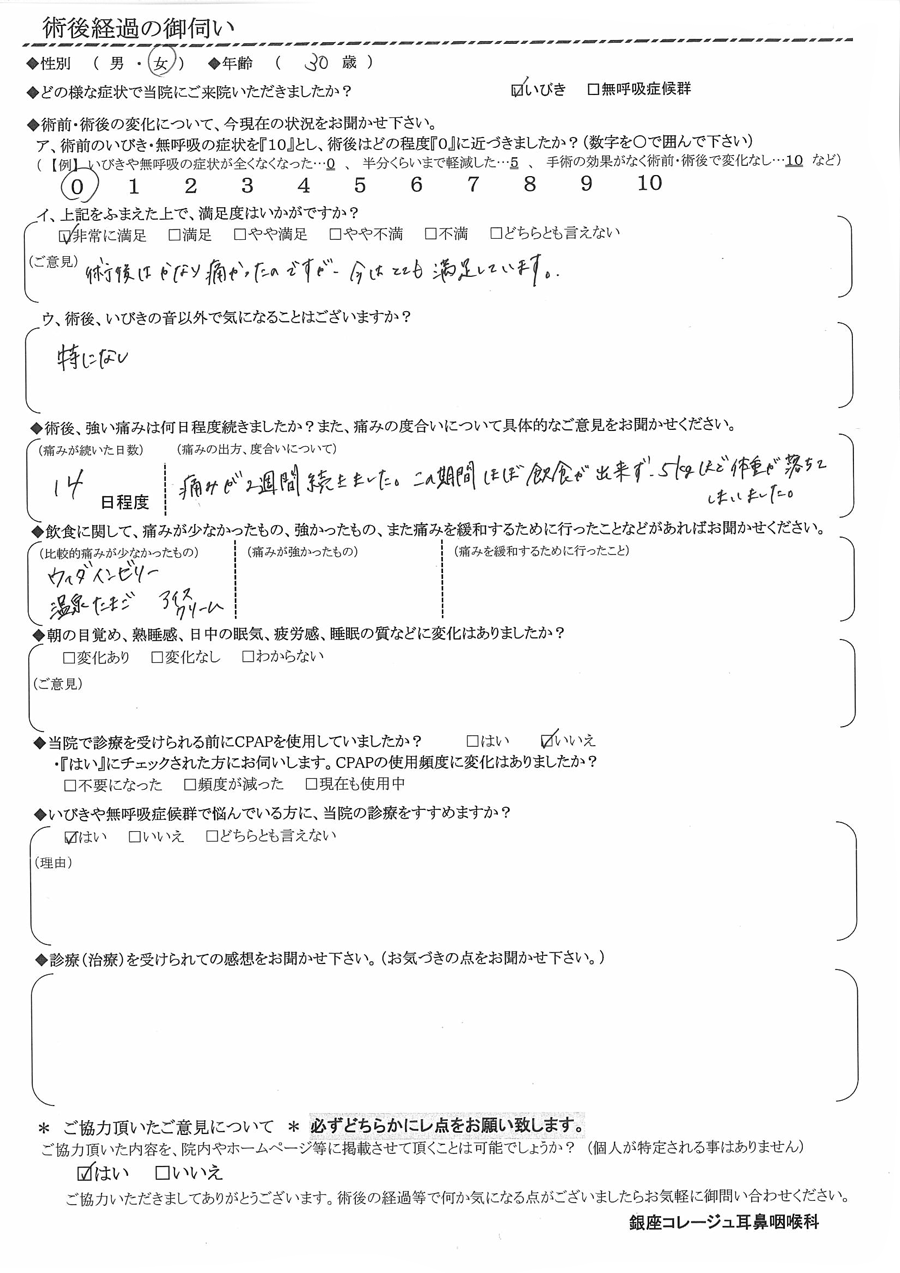 術後経過の御伺い
◆性別 ( 男 ・ 女 ) ◆年齢 ( 30 歳 )
◆どの様な症状で当院にご来院いただきましたか? ☑いびき □無呼吸症候群
◆術前・術後の変化について、今現在の状況をお聞かせ下さい。
ア、術前のいびき・無呼吸の症状を『10』とし、術後はどの程度『0』に近づきましたか?(数字を○で囲んで下さい)
(【例】いびきや無呼吸の症状が全くなくなった…0 、 半分くらいまで軽減した…5 、 手術の効果がなく術前・術後で変化なし…10 など)
0 1 2 3 4 5 6 7 8 9 10
イ、上記をふまえた上で、満足度はいかがですか?
☑非常に満足 □満足 □やや満足 □やや不満 □不満 □どちらとも言えない
(ご意見) 術後はかなり痛かったのですが、今はとても満足しています。
ウ、術後、いびきの音以外で気になることはございますか?
特になし
◆術後、強い痛みは何日程度続きましたか?また、痛みの度合いについて具体的なご意見をお聞かせください。
(痛みが続いた日数) (痛みの出方、度合いについて)
14 日程度 痛みが2週間続きました。この期間ほぼ飲食が出来ず、5kgほど体重が落ちて
しまいました。
◆飲食に関して、痛みが少なかったもの、強かったもの、また痛みを緩和するために行ったことなどがあればお聞かせください。
(比較的痛みが少なかったもの) (痛みが強かったもの) (痛みを緩和するために行ったこと)
ウィダインゼリー
温泉たまご アイス
クリーム
◆朝の目覚め、熟睡感、日中の眠気、疲労感、睡眠の質などに変化はありましたか?
□変化あり □変化なし □わからない
(ご意見)
◆当院で診療を受けられる前にCPAPを使用していましたか? □はい ☑いいえ
・『はい』にチェックされた方にお伺いします。CPAPの使用頻度に変化はありましたか?
□不要になった □頻度が減った □現在も使用中
◆いびきや無呼吸症候群で悩んでいる方に、当院の診療をすすめますか?
☑はい □いいえ □どちらとも言えない
(理由)
◆診療(治療)を受けられての感想をお聞かせ下さい。(お気づきの点をお聞かせ下さい。)
＊ ご協力頂いたご意見について ＊ 必ずどちらかにレ点をお願い致します。
ご協力頂いた内容を、院内やホームページ等に掲載させて頂くことは可能でしょうか? (個人が特定される事はありません)
☑はい □いいえ
ご協力いただきましてありがとうございます。術後の経過等で何か気になる点がございましたらお気軽に御問い合わせください。
銀座コレージュ耳鼻咽喉科